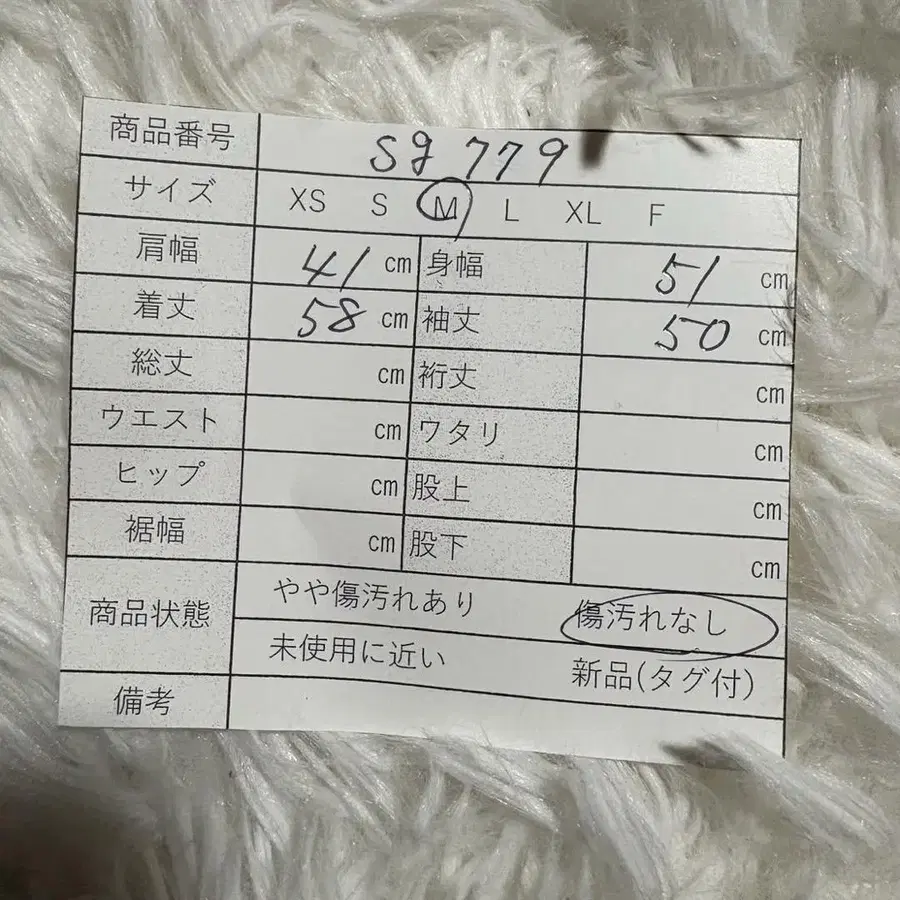 商品番号 sg 779
サイズ XS S M L XL F
肩幅 41 cm 身幅 51 cm
着丈 58 cm 袖丈 50 cm
総丈 cm 裄丈 cm
ウエスト cm ワタリ cm
ヒップ cm 股上 cm
裾幅 cm 股下 cm
商品状態 やや傷汚れあり 傷汚れなし
未使用に近い 新品(タグ付)
備考